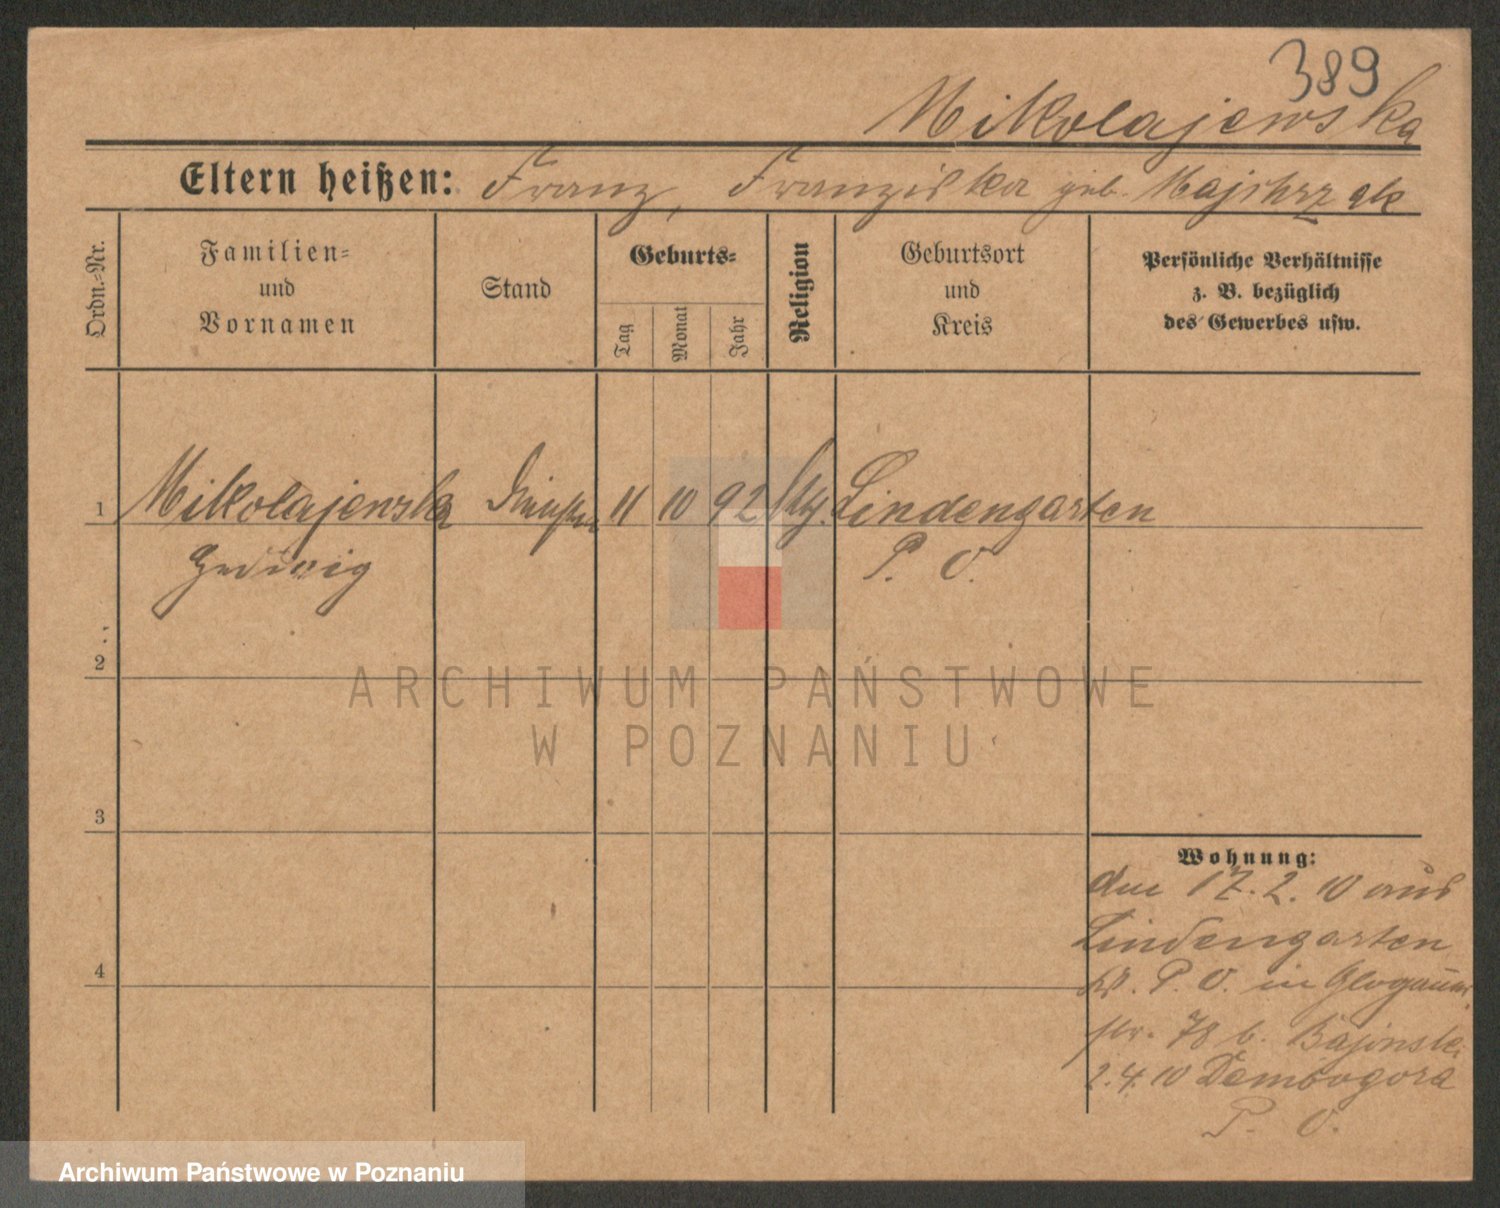 389
Mikolajewska
Eltern heißen: Franz, Franziska geb. Majchrzak
Ordn.-Nr.
Familien-
und
Vornamen
Stand
Geburts-
Tag
Monat
Jahr
Religion
Geburtsort
und
Kreis
Persönliche Verhältnisse
z. B. bezüglich
des Gewerbes usw.
1 Mikolajewska 11 10 92 Lindengarten
Hedwig P. O.
2
3
4
Wohnung:
den 17. 2. 10 aus
Lindengarten
P. O. in Glogauer
str. 78 b. Bajonski
2.4.10 Dembogora
P. O.
ARCHIWUM PAŃSTWOWE
W POZNANIU
Archiwum Państwowe w Poznaniu